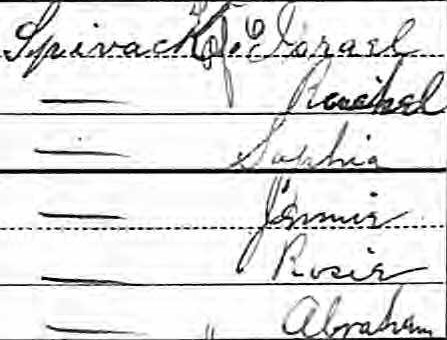 Spivack Israel
— Rachel
— Sophia
— Jennie
— Rosie
— " Abraham